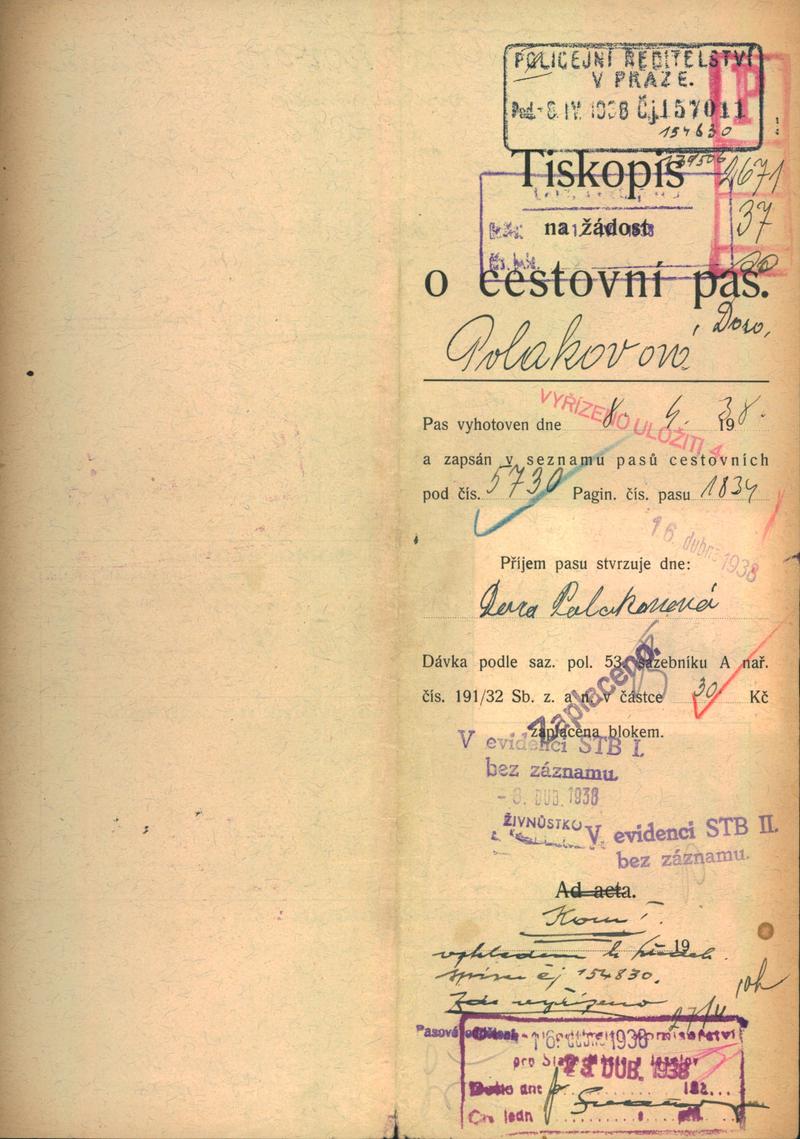 POLICEJNÍ ŘEDITELSTVÍ
V PRAZE.
Pod. - 8. IV. 1938 Čj. 157011
154630
139506
P
2671
37
Tiskopis
na žádost
1938
o cestovní pas.
Polakovová, Dora,
Pas vyhotoven dne 8. 4. 1938.
VYŘÍZENO ULOŽITI 4
a zapsán v seznamu pasů cestovních
pod čís. 5730 Pagin. čís. pasu 1834
16. dubna 1938
Příjem pasu stvrzuje dne:
Dora Polakonová
Dávka podle saz. pol. 53. sazebníku A nař.
čís. 191/32 Sb. z. a n. v částce 30 Kč
Zaplaceno.
zaplacena blokem.
V evidenci STB I.
bez záznamu.
- 8. DUB. 1938
ŽIVNOSTKO
V evidenci STB II.
bez záznamu.
Ad acta.
19
vzhledem k
spisu čj 154830.
vyřízeno
27/4
Pasové
16. dubna 1938
pro
23. DUB. 1938
Došlo dne
Čís. jedn.